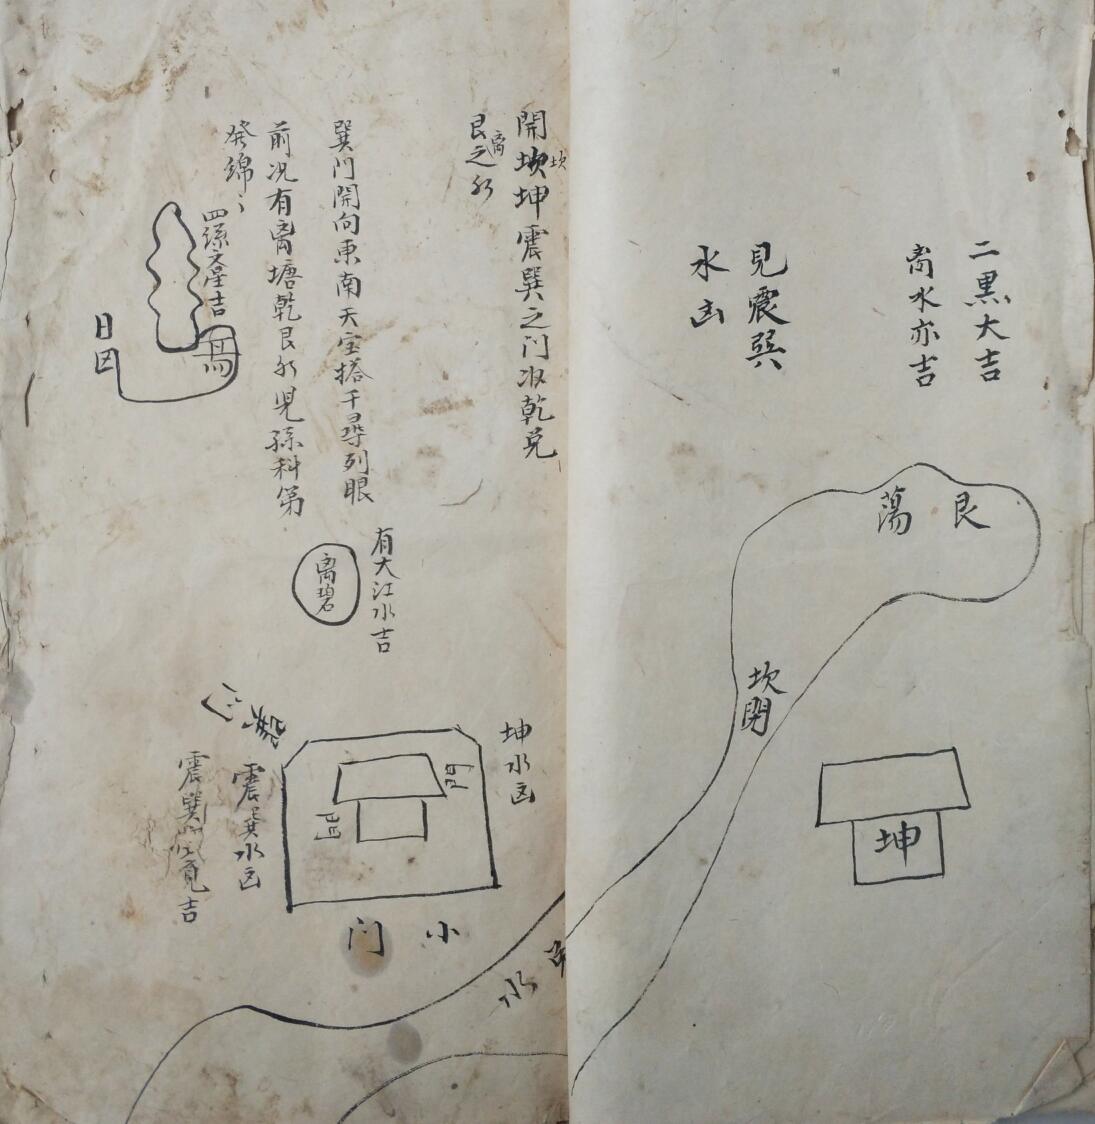 二黑大吉
离水亦吉
見震巽
水凶
艮
蕩
坎
坤
開坎坤震巽之门收乾兑
坎
艮离之水
巽门開向東南天宝搭千尋列眼
前况有离塘乾艮水児孫科第
發綿々
四孫文星吉
有大江水吉
离碧
坤水凶
巽门
震巽水凶
震巽
吉
小门
水